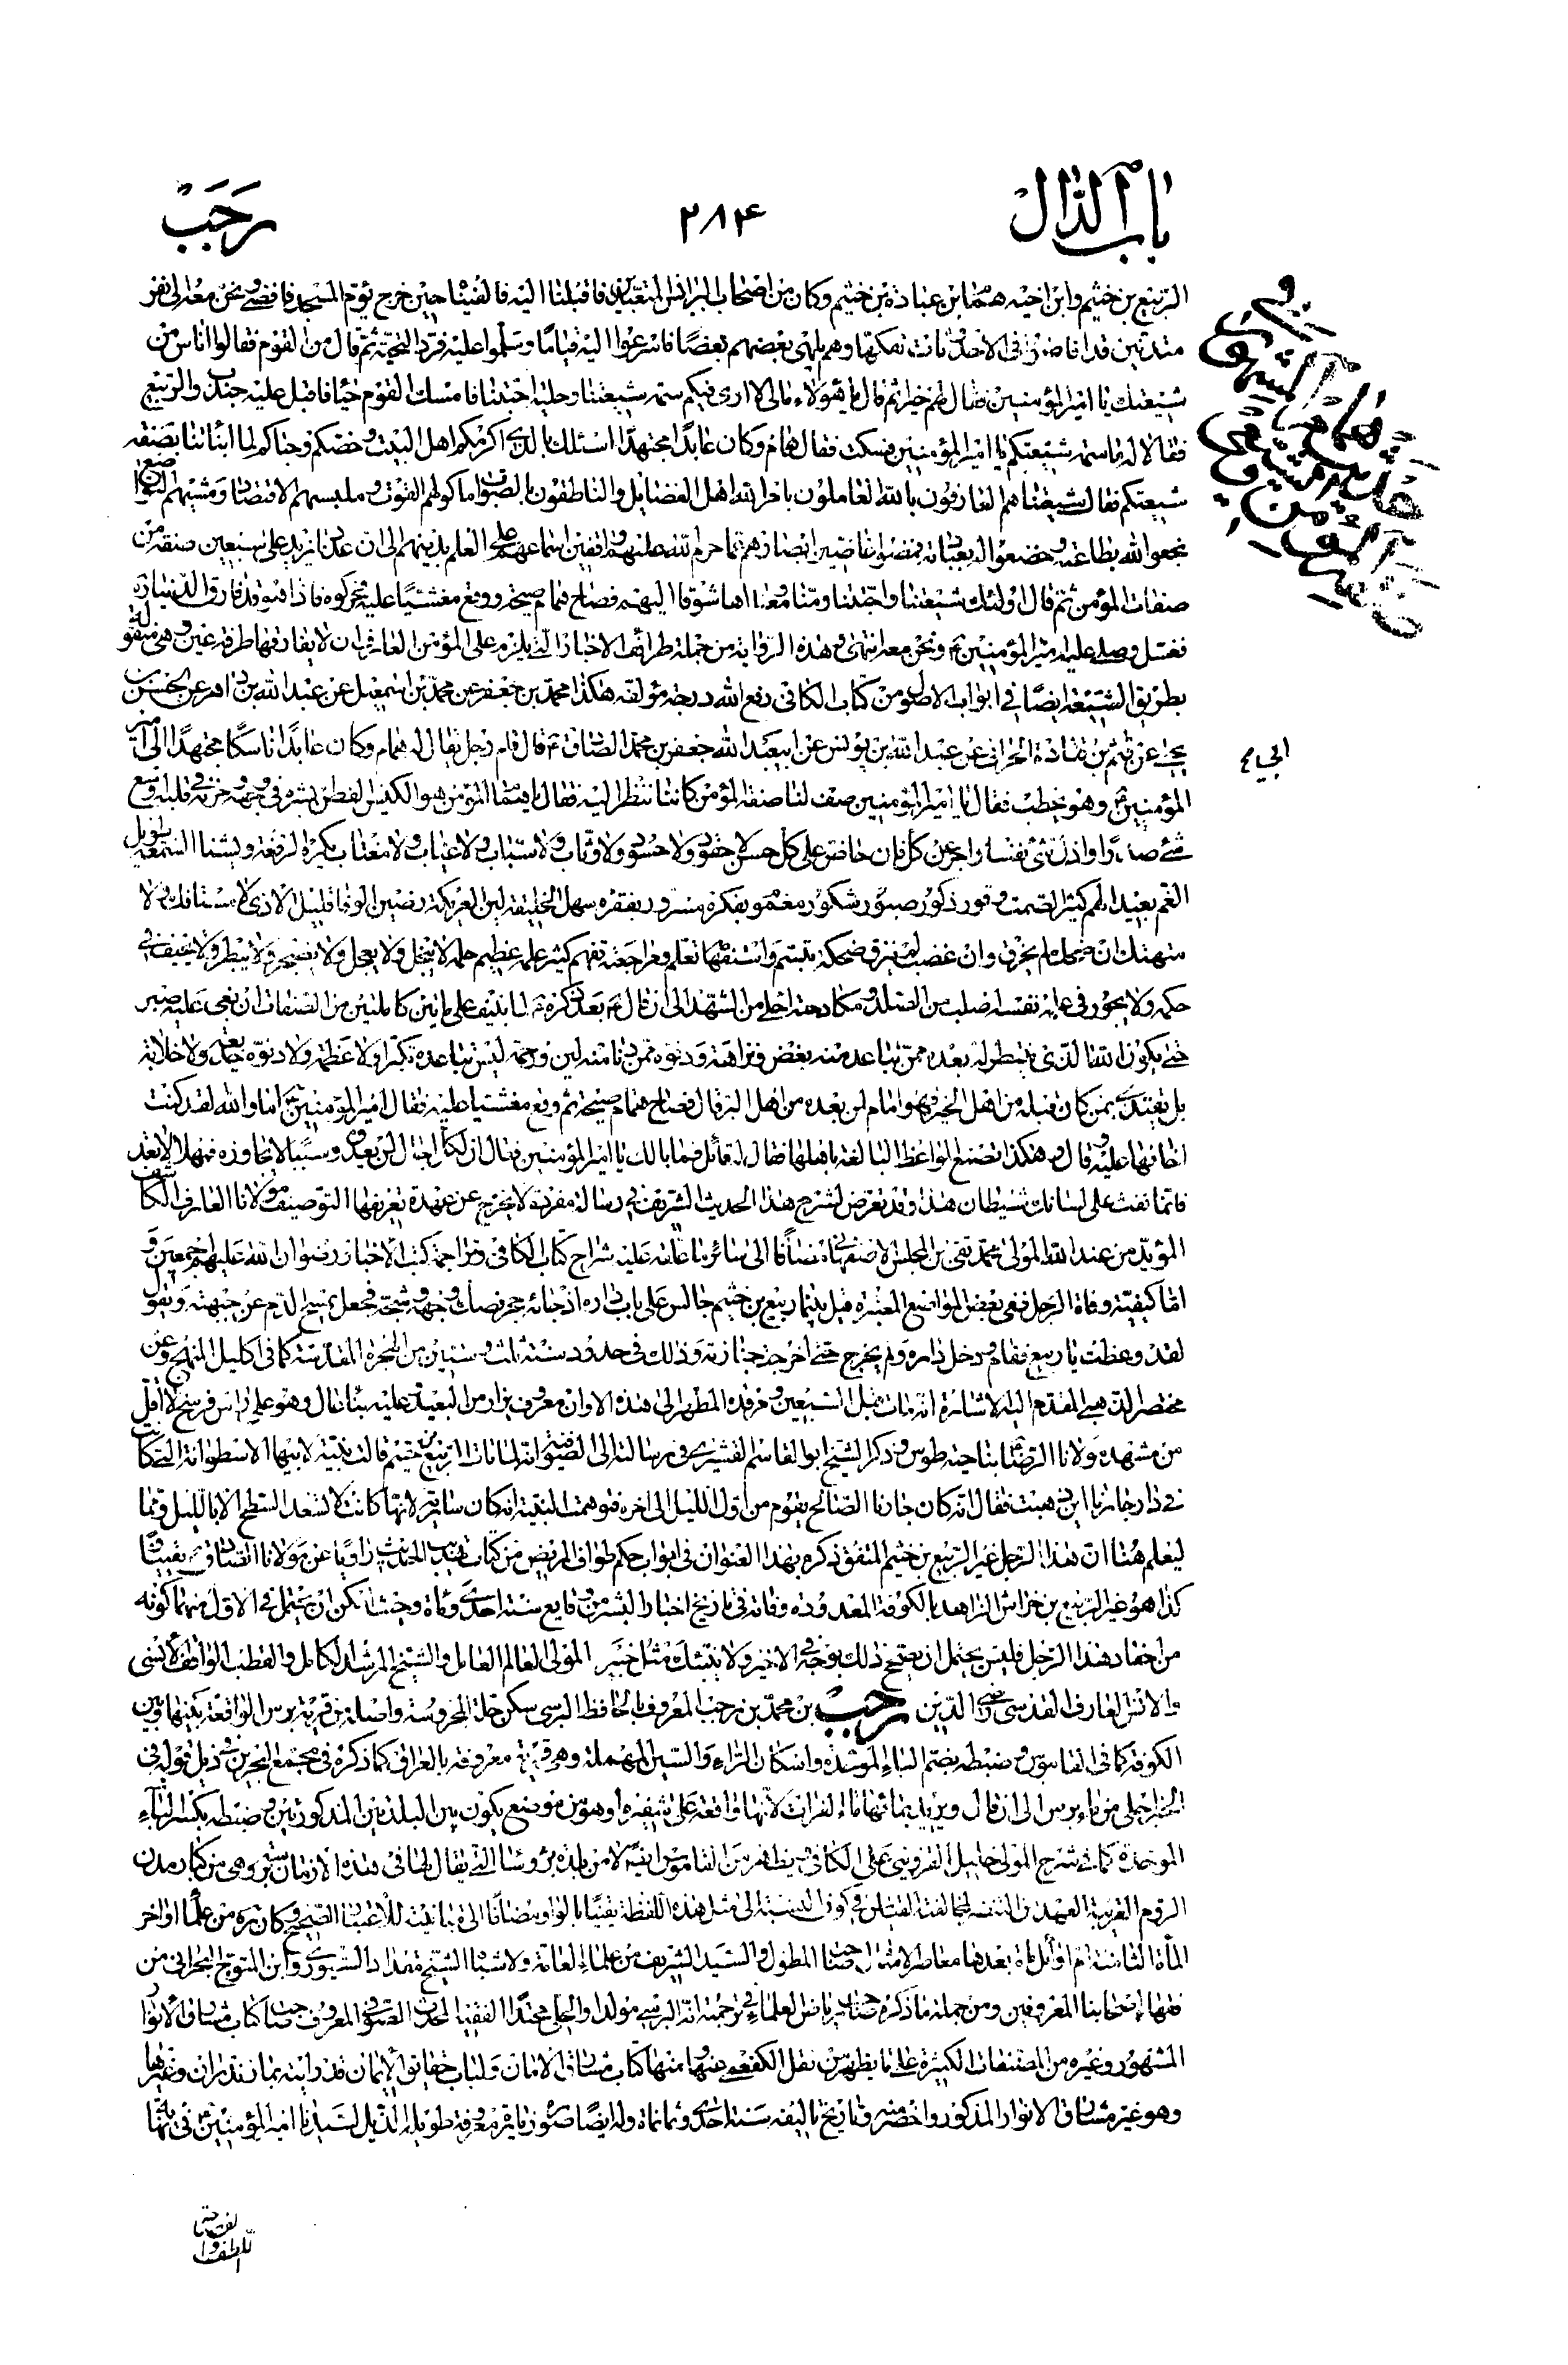 باب الذال
٢٨٤
رجب
الربيع بن خثيم وابن اخيه همام ابن عبادة بن خثيم وكان من اصحاب البرانس المتعبدين فاقبلنا اليه فالفينا حين خرج يؤم المسجد فافضى ونحن معه الى نفر
متدينين قد افاضوا في الاحدوثات تفكها وهم يلهى بعضهم بعضا فاسرعوا اليه قياما وسلموا عليه فرد التحية ثم قال من القوم فقالوا اناس من
شيعتك يا امير المؤمنين فقال لهم خيرا ثم قال يا هؤلاء مالى لا ارى فيكم سمة شيعتنا وحلية احبتنا فامسك القوم حياء فاقبل عليه جندب والربيع
فقالا له ما سمة شيعتكم يا امير المؤمنين فسكت فقال همام وكان عابدا مجتهدا اسئلك بالذي اكرمكم اهل البيت وخصكم وحباكم لما انبأتنا بصفة
شيعتكم فقال شيعتنا هم العارفون بالله العاملون بامر الله اهل الفضايل والناطقون بالصواب ماكولهم القوت وملبسهم الاقتصاد ومشيهم التواضع
بخعوا الله بطاعته وخضعوا له بعبادته فمضوا غاضين ابصارهم عما حرم الله عليهم واقفين اسماعهم على العلم بدينهم الى ان عد ما يزيد على سبعين صفة من
صفات المؤمن ثم قال اولئك شيعتنا واحبتنا ومنا ومعنا اها شوقا اليهم فصاح همام صيحة ووقع مغشيا عليه فحركوه فاذا هو قد فارق الدنيا ره
فغسل وصلى عليه امير المؤمنين ع ونحن معه انتهى وهذه الرواية من جملة طرائف الاخبار التى يلزم على المؤمن العارف ان لا يفارقها طرفة عين وهى منقولة
بطريق الشيعة ايضا في ابواب الاصول من كتاب الكافى رفع الله درجة مؤلفه هكذا محمد بن جعفر عن محمد بن اسمعيل عن عبد الله بن داهر عن الحسن بن
يحيى عن قثم بن قتادة الحرانى عن عبد الله بن يونس عن ابيعبد الله جعفر بن محمد الصادق ع قال قام رجل يقال له همام وكان عابدا ناسكا مجتهدا الى امير
المؤمنين ع وهو يخطب فقال يا امير المؤمنين صف لنا صفة المؤمن كاننا ننظر اليه فقال يا همام المؤمن هو الكيس الفطن بشره في وجهه وحزنه في قلبه اوسع
شئ صدرا واذل شئ نفسا زاجر عن كل فان حاض على كل حسن لا حقود ولا حسود ولا وثاب ولا سباب ولا عياب ولا مغتاب يكره الرفعة ويشنأ السمعة طويل
الغم بعيد الهم كثير الصمت وقور ذكور صبور شكور مغموم بفكره مسرور بفقره سهل الخليقة لين العريكة رضين الوفا قليل الاذى لا مستافك ولا
متهتك ان ضحك لم يخرق وان غضب لم ينزق ضحكه تبسم واستفهامه تعلم ومراجعته تفهم كثير علمه عظيم حلمه لا يبخل ولا يعجل ولا يضجر ولا يبطر ولا يحيف في
حكمه ولا يجور في علمه نفسه اصلب من الصلد ومكادحته احلى من الشهد الى ان قال ع بعد ذكره ع لما ينيف على مائتين كاملتين من الصفات ان بغى عليه صبر
حتى يكون الله الذى ينتصر له بعده ممن تباعد منه بغض ونزاهة ودنوه ممن دنا منه لين ورحمة ليس تباعده تكبرا ولا عظمة ولا دنوه خديعة ولا خلابة
بل يقتدى بمن كان قبله من اهل الخير فهو امام لمن بعده من اهل البر قال فصاح همام صيحة ثم وقع مغشيا عليه فقال امير المؤمنين ع اما والله لقد كنت
اخافها عليه وقال وهكذا تصنع المواعظ البالغة باهلها فقال له قائل فما بالك يا امير المؤمنين فقال ان لكل اجلا لن يعدوه وسببا لا يتجاوزه فمهلا لا تعد
فانما نفث على لسانك شيطان هذا وقد تعرض لشرح هذا الحديث الشريف في رسالة مفردة لا يخرج عن عهدة تعريفها التوصيف مولانا العارف الكاشف
المؤيد من عند الله المولى محمد تقى بن المجلسى الاصفهانى مضافا الى سائر ما علقه عليه شراح كتاب الكافى وتراجمة كتب الاخبار رضوان الله عليهم اجمعين و
اما كيفية وفاة الرجل ففى بعض المواضع المعتبرة قيل بينما ربيع بن خثيم جالس على باب داره اذ جائه حجر فصك وجهه وشجه فجعل يمسح الدم عن جبهته ويقول
لقد وعظت يا ربيع فقام ودخل داره ولم يخرج حتى اخرجت جنازته وذلك في حدود سنة ثلث وستين من الهجرة المقدسة كما في اكليل المنهج وعن
مختصر الذهبى المقدم اليه الاشارة انه مات قبل السبعين ومرقده المطهر الى هذه الاوان معروف يزار من البعيد وعليه بنا عال وهو على راس فرسخ لا اقل
من مشهد مولانا الرضا ع بناحية طوس وذكر الشيخ ابو القاسم القشيرى في رسالته الى الصوفية انه لما مات الربيع بن خثيم قالت بنية لابيها الاسطوانة التى كانت
في دار جارنا اين ذهبت فقال انه كان جارنا الصالح يقوم من اول الليل الى اخره فتوهمت البنية انه كان سارية لانها كانت لا تصعد السطح الا بالليل ومما
ليعلم هنا ان هذا الرجل غير الربيع بن خثيم المتفق ذكره بهذا العنوان في ابواب حكم طواف المريض من كتاب تهذيب الحديث راويا عن مولانا الصادق ع يقينا و
كذا هو غير الربيع بن خراش الزاهد بالكوفة المعدودة وفاته في تاريخ اخبار البشر من وقايع سنة احدى ومأة وحيث امكن ان يحتمل في الاول منهما كونه
من احفاد هذا الرجل فليس يحتمل ان يصح ذلك بوجه في الاخير ولا ينبئك مثل خبير المولى العالم العامل والشيخ المرشد الكامل والقطب الواقف الانسى
والانس العارف القدسى رضى الدين رجب بن محمد بن رجب المعروف بالحافظ البرسى سكن حلة المحروسة واصله من قرية برس الواقعة بينها وبين
الكوفة كما في القاموس وضبطه بضم الباء الموحدة واسكان الراء والسين المهملة وهى قرية معروفة بالعراق كما ذكره في مجمع البحرين في ذيل قوله في
الخبر احلى من ماء برس الى ان قال ويريد بمائها ماء الفرات لانها واقعة على شفيره او هو من موضع يكون بين البلدين المذكورتين وضبطه بكسر الباء
الموحدة كما في شرح المولى خليل القزوينى على الكافى ويظهر من القاموس ايضا لا من بلدة بروسا التى يقال لها في هذه الازمان وهى من كبار مدن
الروم القريبة العهد من الفتح لمخالفة القياس في كون النسبة الى مثل هذه اللفظة يقينا بالواو مضافا الى مباينته للاعتبار الصحيح وكان ره من علماء اواخر
المأة الثامنة او اوائل ما بعدها معاصرا لامثال صاحب المطول والسيد الشريف من علماء العامة ولاشباه الشيخ مقداد السيورى وابن المتوج البحرانى من
فقهاء اصحابنا المعروفين ومن جملة ما ذكره صاحب رياض العلماء في ترجمته انه البرسى مولدا والحلى محتدا الفقيه المحدث الصوفى المعروف صاحب كتاب مشارق الانوار
المشهور وغيره من المصنفات الكثيرة على ما يظهر من نقل الكفعمى عنها منها كتاب مشارق الامان ولباب حقايق الايمان قد رايته بمازندران وغيرها
وهو غير مشارق الانوار المذكور واخصر منه وتاريخ تاليفه سنة احدى وثمانمأة وله ايضا
الجياع